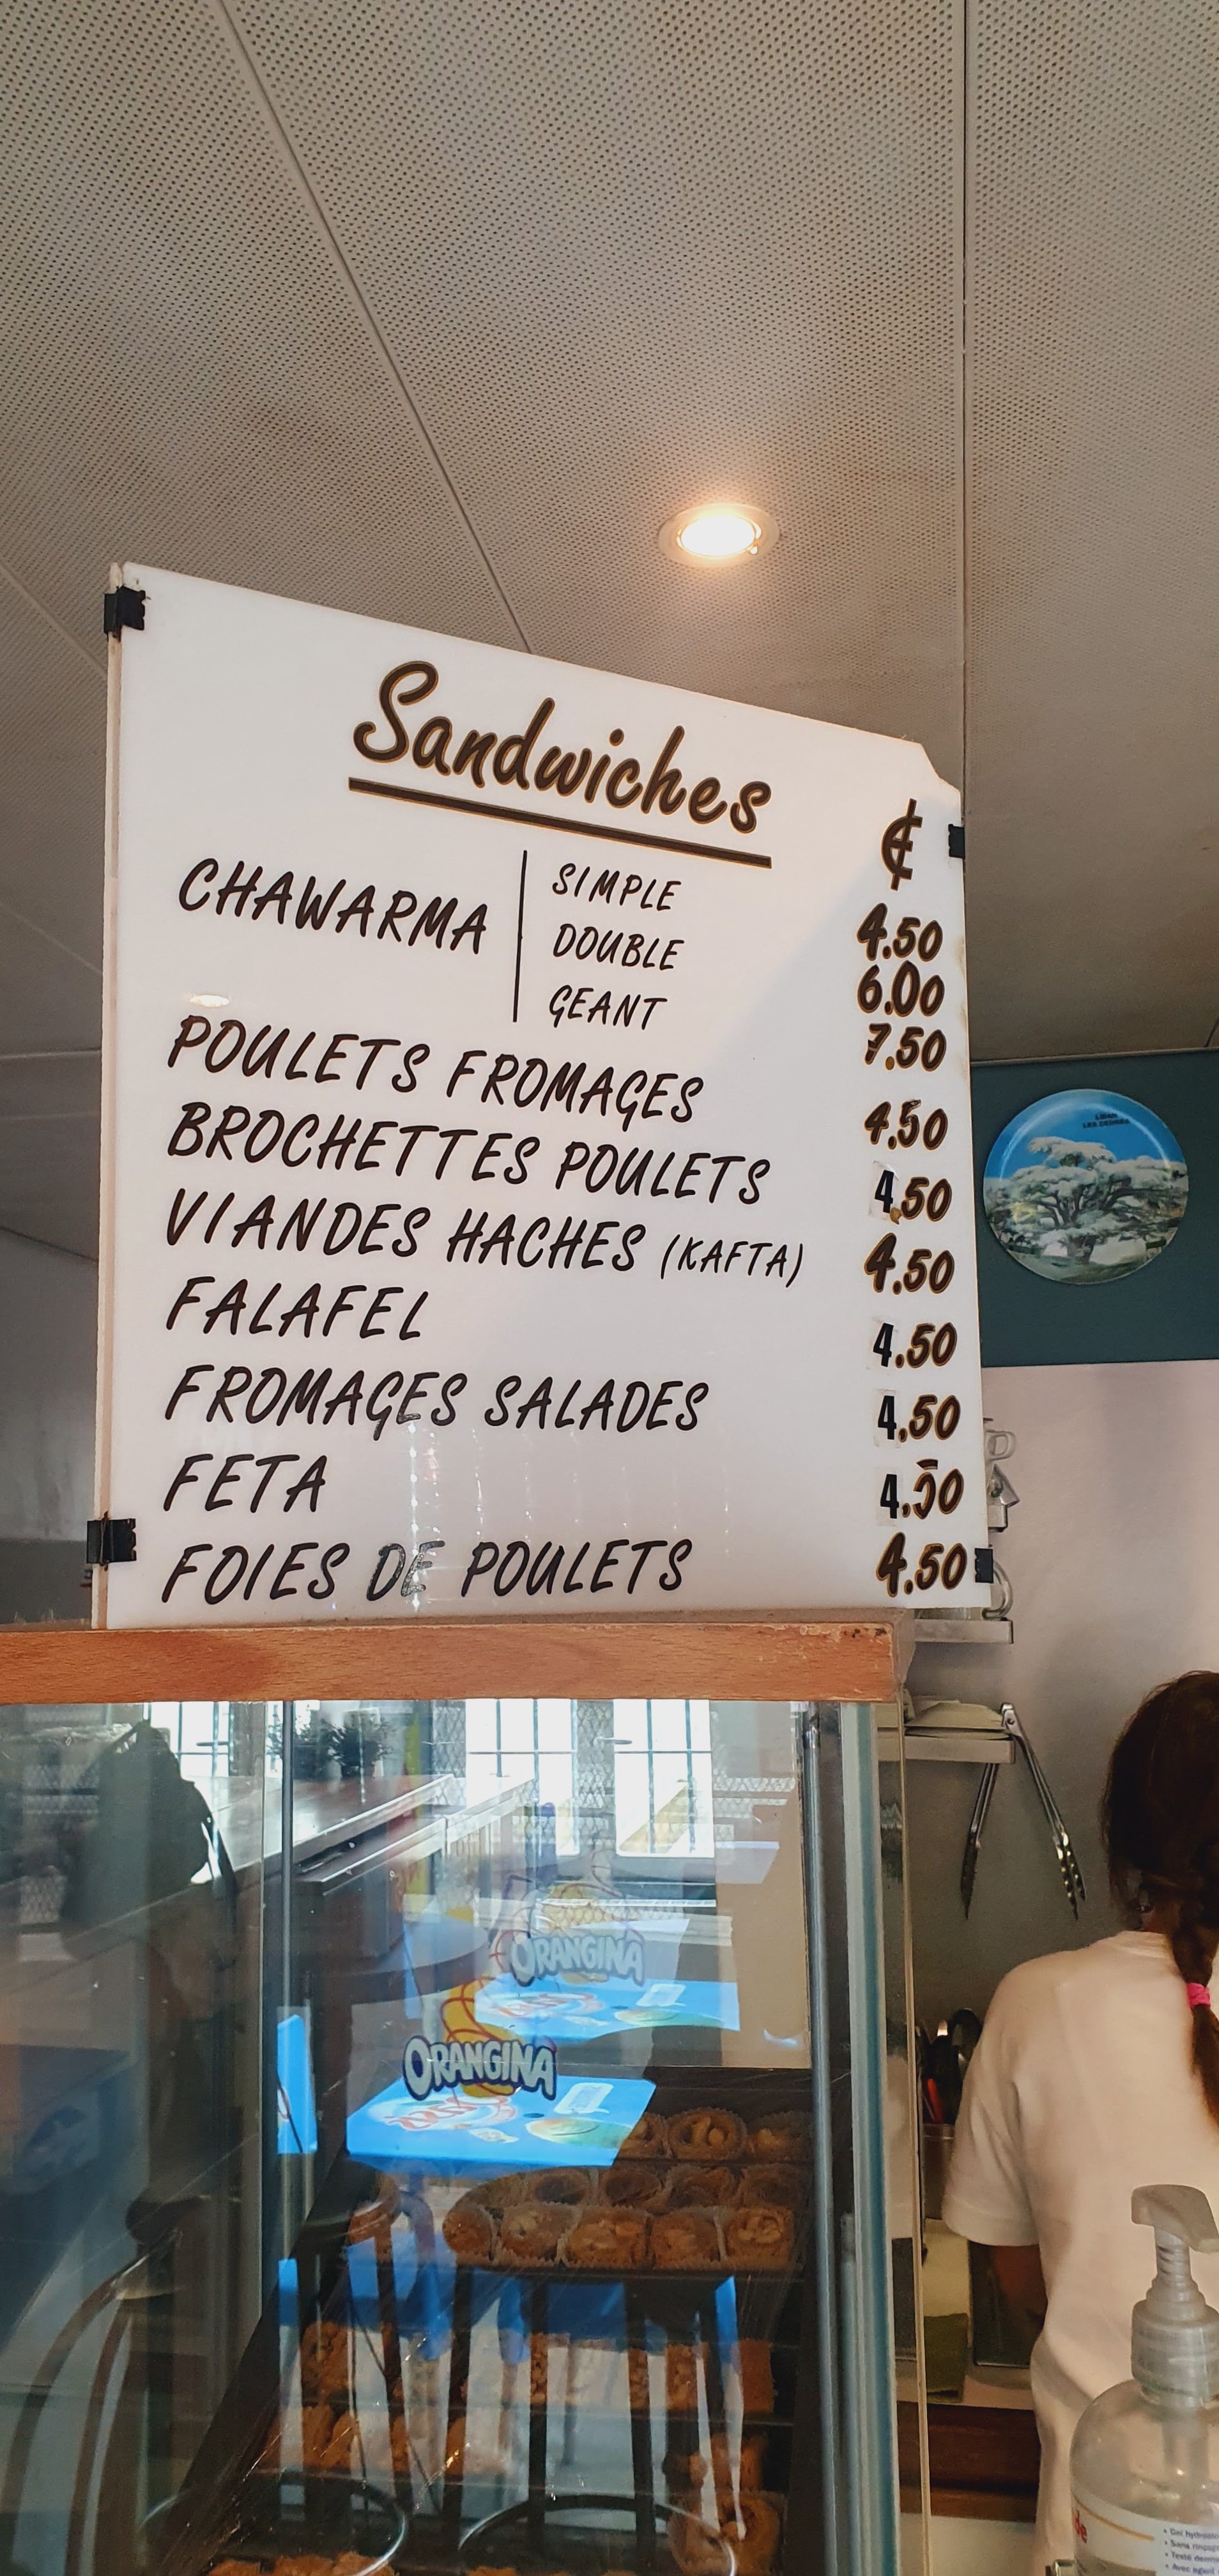 Sandwiches
€
CHAWARMA
SIMPLE 4.50
DOUBLE 6.00
GEANT 7.50
POULETS FROMAGES 4.50
BROCHETTES POULETS 4.50
VIANDES HACHES (KAFTA) 4.50
FALAFEL 4.50
FROMAGES SALADES 4.50
FETA 4.50
FOIES DE POULETS 4.50
LIBAN
LES CEDRES
ORANGINA
ORANGINA
• Gel hydroalc
• Sans rinçage